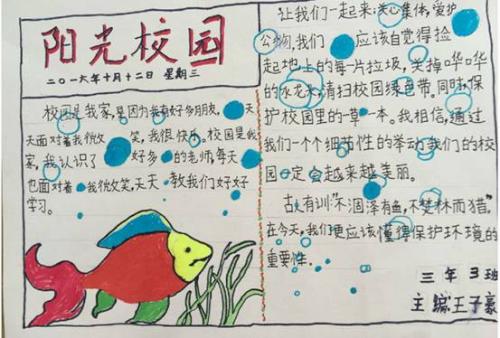 阳光校园
二〇一六年十月十二日 星期三
校园是我家,是因为我有好多朋友,天
天面对着我微笑,我很快乐。校园是我
家,我认识了好多的老师每天
也面对着我微笑,天天教我们好好
学习。
让我们一起来:关心集体,爱护
公物,我们应该自觉得捡
起地上的每一片垃圾,关掉哗哗
的水龙头,清扫校园绿色带。同时,保
护校园里的一草一本。我相信,通过
我们一个个细节性的举动,我们的校
园一定会越来越美丽。
古有训“不涸泽有鱼,不焚林而猎”。
在今天,我们更应该懂得保护环境的
重要性。
三年3班
主编:王子豪